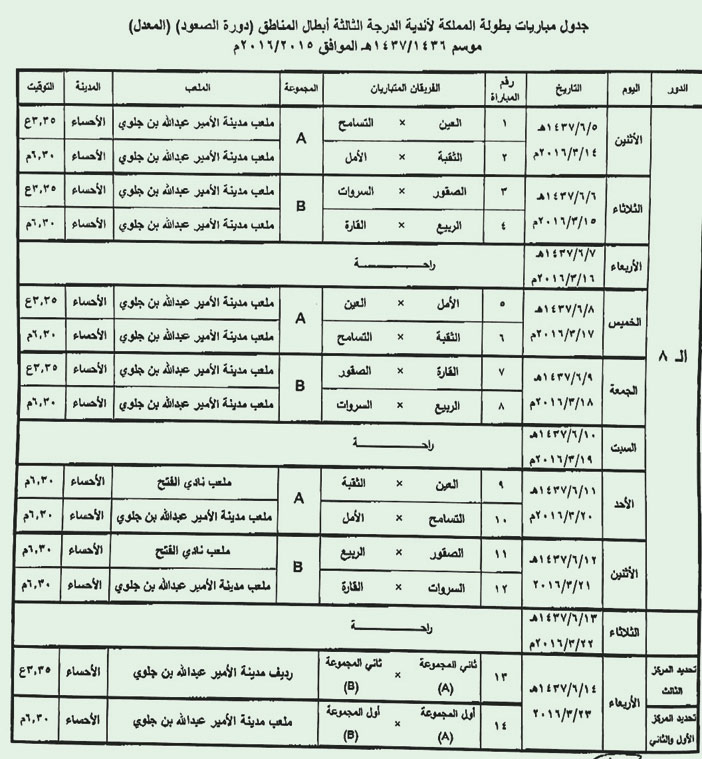 جدول مباريات بطولة المملكة لأندية الدرجة الثالثة أبطال المناطق (دورة الصعود) (المعدل)
موسم ١٤٣٧/١٤٣٦هـ الموافق ٢٠١٦/٢٠١٥م
الدور اليوم التاريخ رقم المباراة الفريقان المتباريان المجموعة الملعب المدينة التوقيت
الـ ٨
الأثنين ١٤٣٧/٦/٥هـ ٢٠١٦/٣/١٤م
١ العين × التسامح A ملعب مدينة الأمير عبدالله بن جلوي الأحساء ٣,٣٥ع
٢ الثقبة × الأمل ملعب مدينة الأمير عبدالله بن جلوي الأحساء ٦,٣٠م
الثلاثاء ١٤٣٧/٦/٦هـ ٢٠١٦/٣/١٥م
٣ الصقور × السروات B ملعب مدينة الأمير عبدالله بن جلوي الأحساء ٣,٣٥ع
٤ الربيع × القارة ملعب مدينة الأمير عبدالله بن جلوي الأحساء ٦,٣٠م
الأربعاء ١٤٣٧/٦/٧هـ ٢٠١٦/٣/١٦م راحـــة
الخميس ١٤٣٧/٦/٨هـ ٢٠١٦/٣/١٧م
٥ الأمل × العين A ملعب مدينة الأمير عبدالله بن جلوي الأحساء ٣,٣٥ع
٦ الثقبة × التسامح ملعب مدينة الأمير عبدالله بن جلوي الأحساء ٦,٣٠م
الجمعة ١٤٣٧/٦/٩هـ ٢٠١٦/٣/١٨م
٧ القارة × الصقور B ملعب مدينة الأمير عبدالله بن جلوي الأحساء ٣,٣٥ع
٨ الربيع × السروات ملعب مدينة الأمير عبدالله بن جلوي الأحساء ٦,٣٠م
السبت ١٤٣٧/٦/١٠هـ ٢٠١٦/٣/١٩م راحـــة
الأحد ١٤٣٧/٦/١١هـ ٢٠١٦/٣/٢٠م
٩ العين × الثقبة A ملعب نادي الفتح الأحساء ٦,٣٠م
١٠ التسامح × الأمل ملعب مدينة الأمير عبدالله بن جلوي الأحساء ٦,٣٠م
الأثنين ١٤٣٧/٦/١٢هـ ٢٠١٦/٣/٢١م
١١ الصقور × الربيع B ملعب نادي الفتح الأحساء ٦,٣٠م
١٢ السروات × القارة ملعب مدينة الأمير عبدالله بن جلوي الأحساء ٦,٣٠م
الثلاثاء ١٤٣٧/٦/١٣هـ ٢٠١٦/٣/٢٢م راحـــة
تحديد المركز الثالث الأربعاء ١٤٣٧/٦/١٤هـ ٢٠١٦/٣/٢٣م
١٣ ثاني المجموعة (A) × ثاني المجموعة (B) رديف مدينة الأمير عبدالله بن جلوي الأحساء ٣,٣٥ع
تحديد المركز الأول والثاني ١٤ أول المجموعة (A) × أول المجموعة (B) ملعب مدينة الأمير عبدالله بن جلوي الأحساء ٦,٣٠م